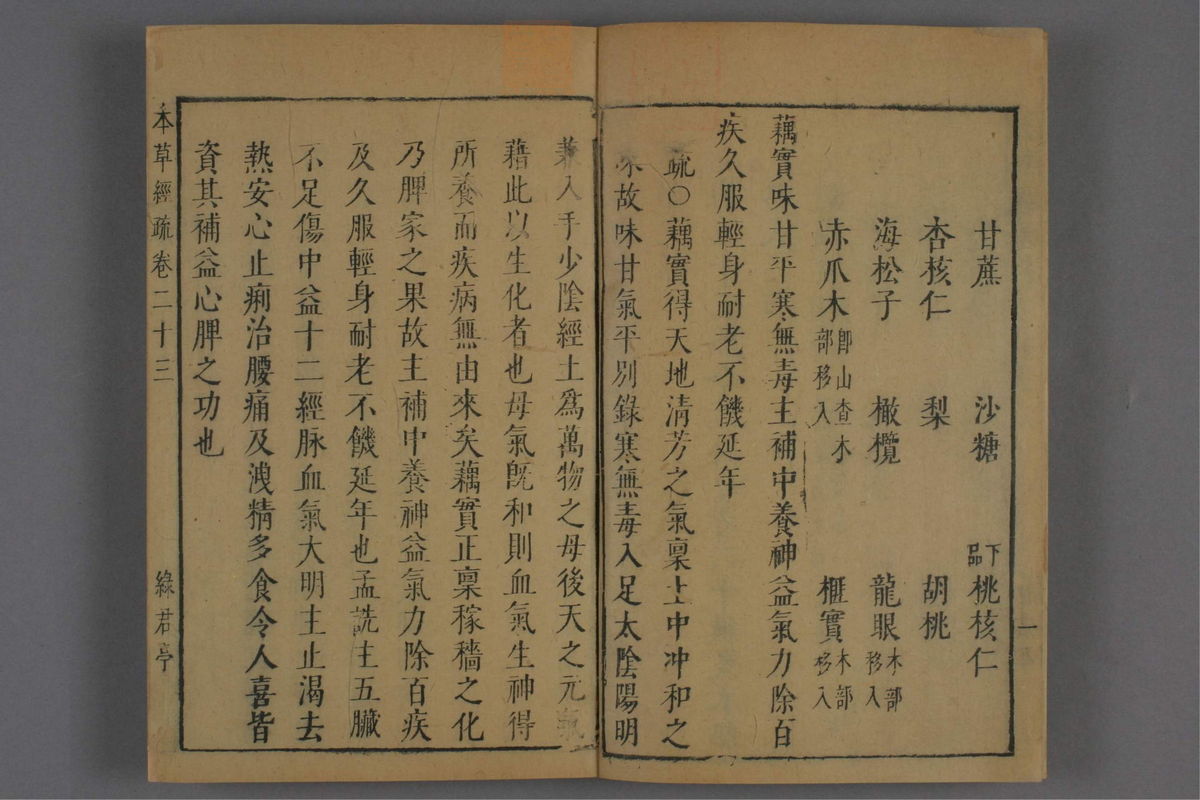 甘蔗 沙糖 下品 桃核仁
杏核仁 梨 胡桃
海松子 橄欖 龍眼 木部移入
赤爪木 卽山查木部移入 榧實 木部移入
藕實味甘平寒無毒主補中養神益氣力除百
疾久服輕身耐老不饑延年
疏〇藕實得天地清芳之氣稟土中冲和之
味故味甘氣平別錄寒無毒入足太陰陽明
兼入手少陰經土爲萬物之母後天之元氣
藉此以生化者也母氣旣和則血氣生神得
所養而疾病無由來矣藕實正稟稼穡之化
乃脾家之果故主補中養神益氣力除百疾
及久服輕身耐老不饑延年也孟詵主五臟
不足傷中益十二經脉血氣大明主止渴去
熱安心止痢治腰痛及洩精多食令人喜皆
資其補益心脾之功也
本草經疏卷二十三 綠君亭
一